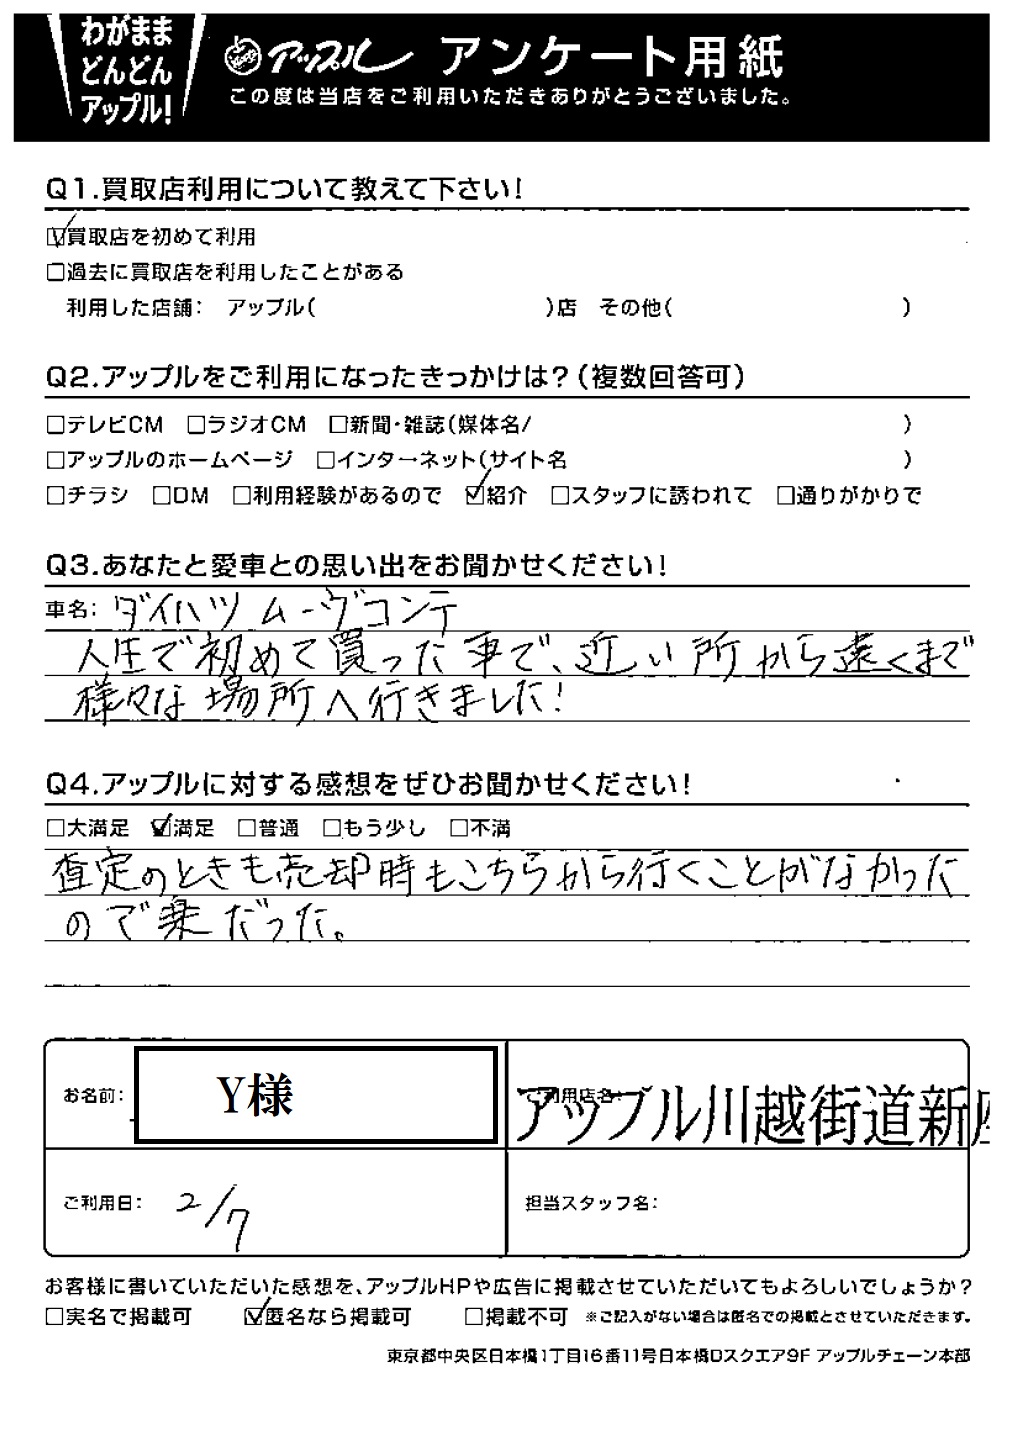 わがまま
どんどん
アップル!
アップル アンケート用紙
この度は当店をご利用いただきありがとうございました。
Q1.買取店利用について教えて下さい!
☑買取店を初めて利用
□過去に買取店を利用したことがある
利用した店舗: アップル( )店 その他( )
Q2.アップルをご利用になったきっかけは?(複数回答可)
□テレビCM □ラジオCM □新聞・雑誌(媒体名/ )
□アップルのホームページ □インターネット(サイト名 )
□チラシ □DM □利用経験があるので ☑紹介 □スタッフに誘われて □通りがかりで
Q3.あなたと愛車との思い出をお聞かせください!
車名: ダイハツ ムーヴコンテ
人生で初めて買った車で、近い所から遠くまで
様々な場所へ行きました!
Q4.アップルに対する感想をぜひお聞かせください!
□大満足 ☑満足 □普通 □もう少し □不満
査定のときも売却時もこちらから行くことがなかった
ので楽だった。
お名前: Y様
ご利用店名: アップル川越街道新座
ご利用日: 2/7
担当スタッフ名:
お客様に書いていただいた感想を、アップルHPや広告に掲載させていただいてもよろしいでしょうか?
□実名で掲載可 ☑匿名なら掲載可 □掲載不可 ※ご記入がない場合は匿名での掲載とさせていただきます。
東京都中央区日本橋1丁目16番11号日本橋Dスクエア9F アップルチェーン本部